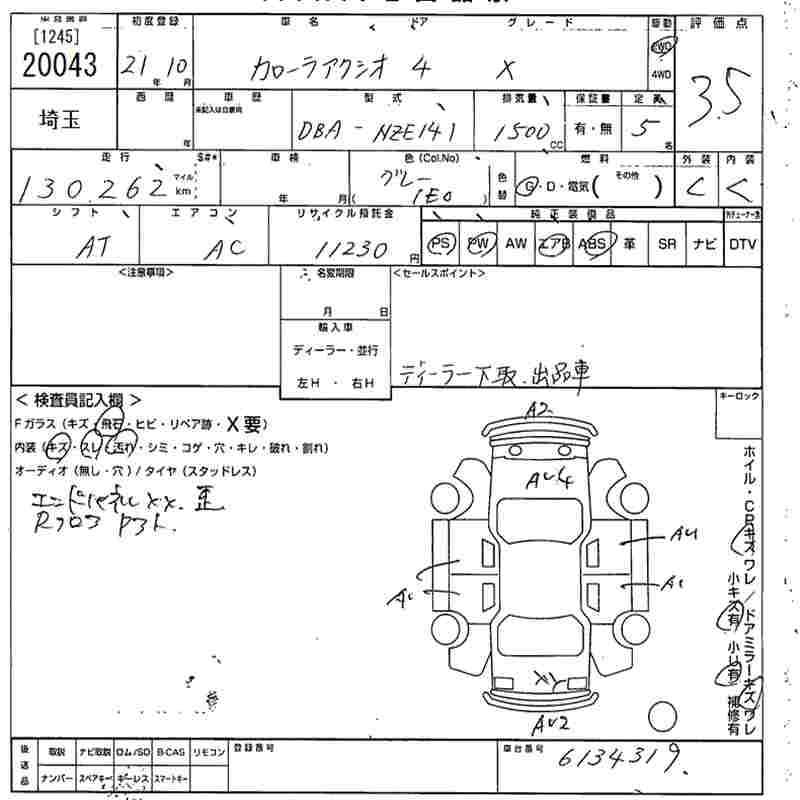 [1245]
20043
初度登録 車名 ドア グレード 駆動 評価点
21 10 カローラアクシオ 4 X 2WD 4WD 3.5
年 月
埼玉
西暦 車歴 型式 排気量 保証書 定員
未記入は自家用
年 DBA-NZE141 1500 CC 有・無 5 名
走行 S#* 車検 色(Col.No) 色替 燃料 外装 内装
130,262 マイル km 年 月 グレー ( 1E0 ) G・D・電気( その他 ) C C
シフト エアコン リサイクル預託金 純正装備品
AT AC 11230 円 PS PW AW エアB ABS 革 SR ナビ DTV
<注意事項> 名変期限 <セールスポイント>
月 日
輸入車
ディーラー・並行
左H ・ 右H
ディーラー下取.出品車
< 検査員記入欄 > キーロック
Fガラス (キズ・飛石・ヒビ・リペア跡・X要)
内装 (キズ・スレ・汚れ・シミ・コゲ・穴・キレ・破れ・割れ)
オーディオ (無し・穴) / タイヤ (スタッドレス)
エンドパネル XX. 歪
Rフロア
A2
AU4
AU1
A1
AU2
ホイル・CPキズワレ / ドアミラーキズワレ
小キズ有 小U有 補修有
後送品 取説 ナビ取説 ロム/SD B-CAS リモコン 登録番号 車台番号
ナンバー スペアキー キーレス スマートキー 6134319